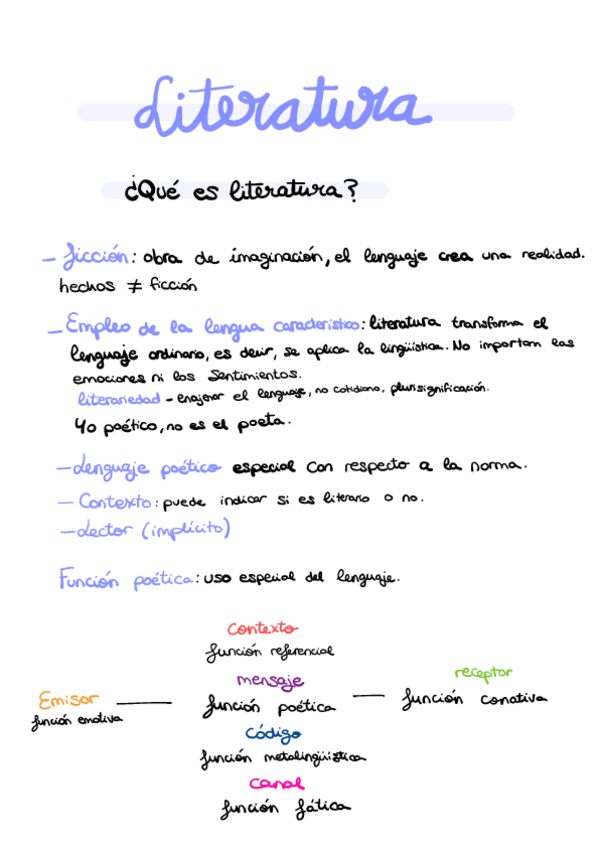 Literatura
¿Qué es literatura?
- ficción: obra de imaginación, el lenguaje crea una realidad.
hechos ≠ ficción
- Empleo de la lengua característico: literatura transforma el
lenguaje ordinario, es decir, se aplica la lingüística. No importan las
emociones ni los sentimientos.
literariedad - enajenar el lenguaje, no cotidiano, plurisignificación.
Yo poético, no es el poeta.
- Lenguaje poético especial con respecto a la norma.
- Contexto: puede indicar si es literario o no.
- Lector (implícito)
Función poética: uso especial del lenguaje.
Contexto
función referencial
mensaje
receptor
Emisor — función poética — función conativa
función emotiva
Código
función metalingüística
Canal
función fática